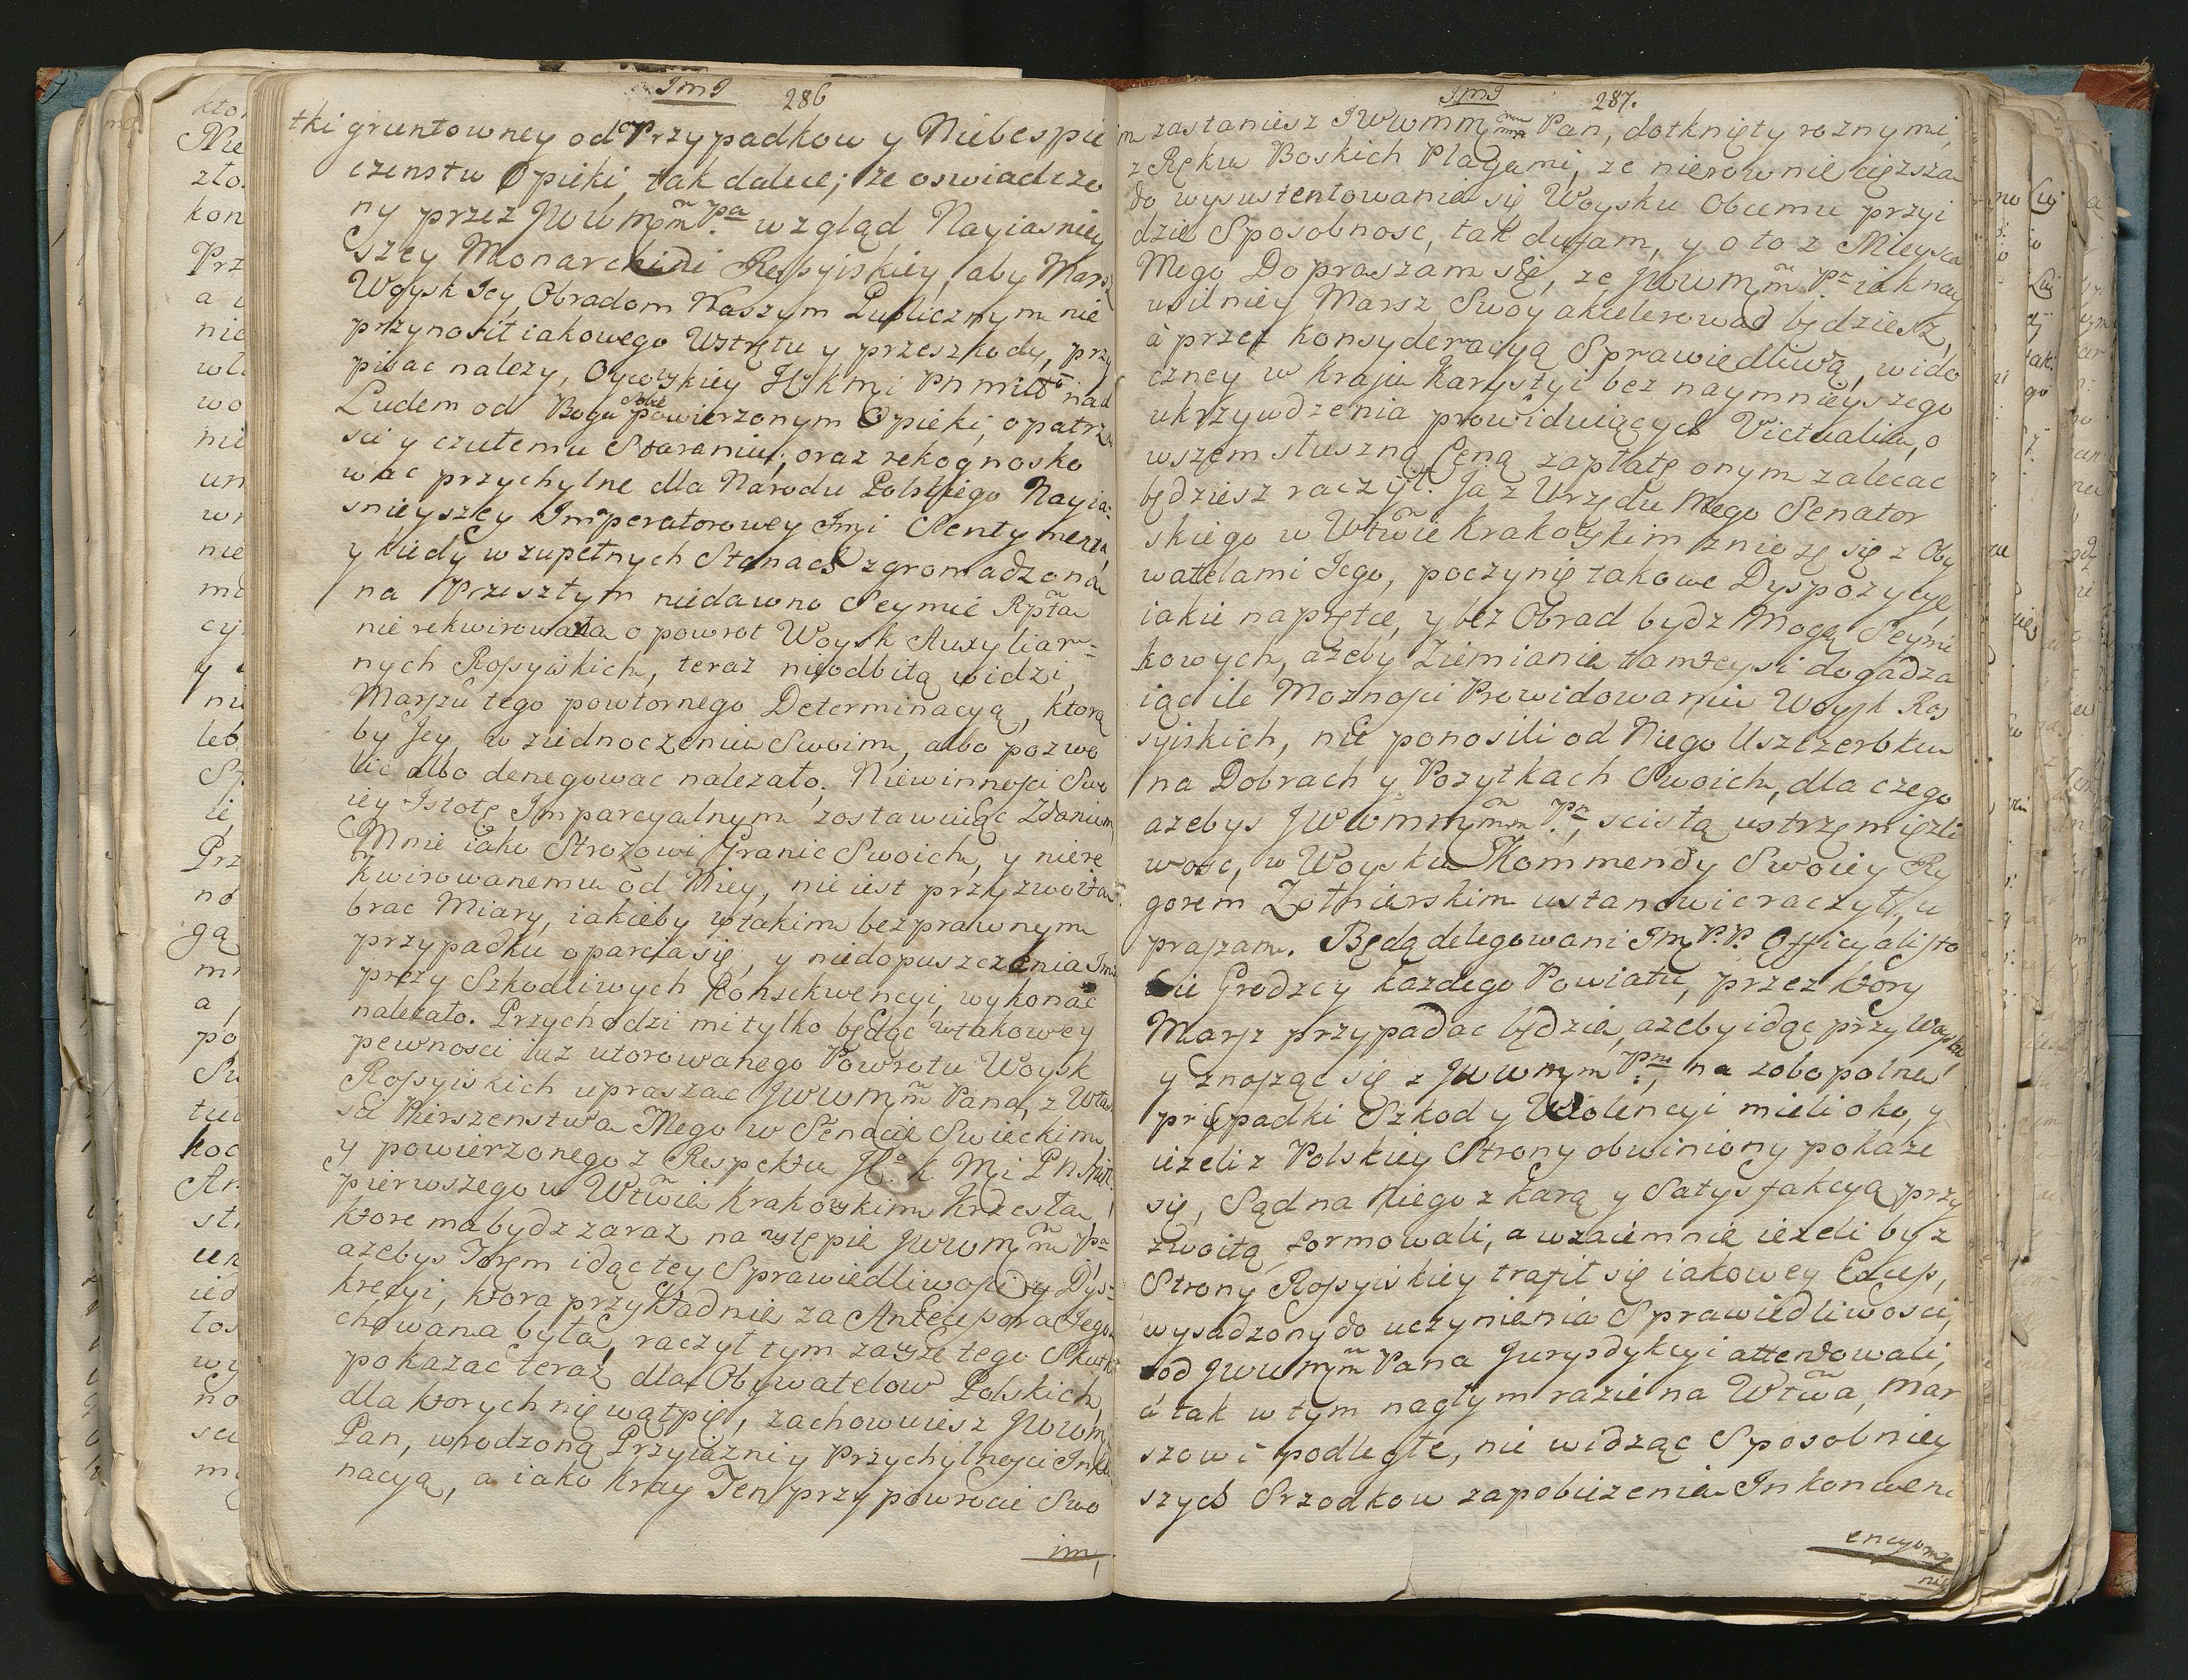 JmJ 286
tki gruntowney od Przypadkow y Niebespie
czenstw Opieki, tak dalece; że oswiadczo
ny przez JWWMm̃ Pa wzgląd Nayiasniey
szey Monarchini Rossyiskiey, aby Marsz
Woysk Jey, Obradom Naszym Publicznym nie
przynosił iakowego Wstrętu y przeszkody, przy
pisac nalezy, Oycowskiey JKMci Pn Miłō nad
Ludem od Boga Sobie powierzonym Opieki, opatrzno
sci y czułemu Staraniu; oraz rekognosko
wac przychylne dla Narodu Polskiego Nayia:
snieyszey Imperatorowey Jmci Sentymenta,
y kiedy w zupełnych Stanach zgromadzona
na Przeszłym niedawno Seymie Rpłta
nie rekwirowała o powrot Woysk Auxyliar=
nych Rossyiskich, teraz nieodbitą widzi,
Marszu tego powtornego Determinacyą, ktorą
by Jey, w ziednoczeniu Swoim, albo pozwo
lic albo denegowac nalezało. Niewinnosci Swo
iey Istotę Imparcyalnym zostawuiąc Zdaniom,
Mnie iako Strozowi Granic Swoich, y niere
kwirowanemu od Niey, nie iest przyzwoita
brac Miary, iakieby w takim bezprawnym
przypadku oparcia się, y niedopuszczenia Im
przy Szkodliwych Konsekwencyi, wykonac
nalezało. Przychodzi mi tylko będąc w takowey
pewnosci iuz utorowanego Powrotu Woysk
Rossyiskich upraszac JWWMm̃ Pana, z Własno
sci Pierszenstwa Mego w Senacie Swieckim
y powierzonego z Respektu JKMci PNM
pierwszego w Wtwie Krakowskim Krzesła,
ktore ma bydz zaraz na wstępie JWWMm̃ Pa
azebys Torem idąc tey Sprawiedliwosci y Dys=
krecyi, ktora przykładnie za Antecessora Jego
chowana była, raczył tym zawsze tego Skutki
pokazac teraz dla Obywatelow Polskich,
dla ktorych nie wątpię, zachowuiesz JWWM
Pan, wrodzoną Przyiazni y Przychylnosci Inkli
nacyą, a iako Kray Ten przy powrocie Swo
im,
JmJ 287.
im zastaniesz JWWMm̃ Pan, dotknięty roznymi,
z Ręku Boskich Plagami, ze nierownie cięzsza
do wysustentowania się Woysku Obcemu przyi
dzie Sposobnosc, tak dufam, y o to z Mieysca
Mego Dopraszam się, ze JWWMm̃ Pn iak nay
usilniey Marsz Swoy akcelerowac będziesz,
à przez konsyderacyą Sprawiedliwą, wido
czney w kraju Karystyi bez naymnieyszego
ukrzywdzenia prowiduiących Victualia, o
wszem słuszną Ceną zapłatę onym zalecac
będziesz raczył. Ja z Urzędu Mego Senator
skiego w Wtwie Krakowskim zniosę się z Oby
watelami Jego, poczynię takowe Dyspozycye
iakie naprętce, y bez Obrad bydz Mogą Seymi
kowych, azeby Ziemianie tamteysi dogadza
iąc ile Moznosci Prowidowaniu Woysk Ros
syiskich, nie ponosili od Niego Uszczerbku
na Dobrach y Pozytkach Swoich, dla czego
azebys JWWMm̃ Pn, scisłą ustrzemięzli
wosc, w Woysku Kommendy Swoiey Ry
gorem Zołnierskim ustanowic raczył, u
praszam. Będą delegowani Jm P.P. Officyalisto
wie Grodzcy kazdego Powiatu, przez ktory
Marsz przypadac będzie, azeby idąc przy Woysku
y znosząc się z JWWMm̃ Pm, na zobopolne
przypadki Szkod y Wiolencyi mieli oko, y
iezeli z Polskiey Strony obwiniony pokaze
się, Sąd na Niego z karą y Satysfakcyą przy
zwoitą formowali, a wzaiemnie iezeli by z
Strony Rossyiskiey trafił się iakowey Exces,
wysadzony do uczynienia Sprawiedliwosci,
od JWWMm̃ Pana Jurysdykcyi attendowali,
à tak w tym nagłym razie na Wtwa, Mar
szowi podległe, nie widząc Sposobniey
szych Srzodkow zapobiezenia Inkonweni
encyom,